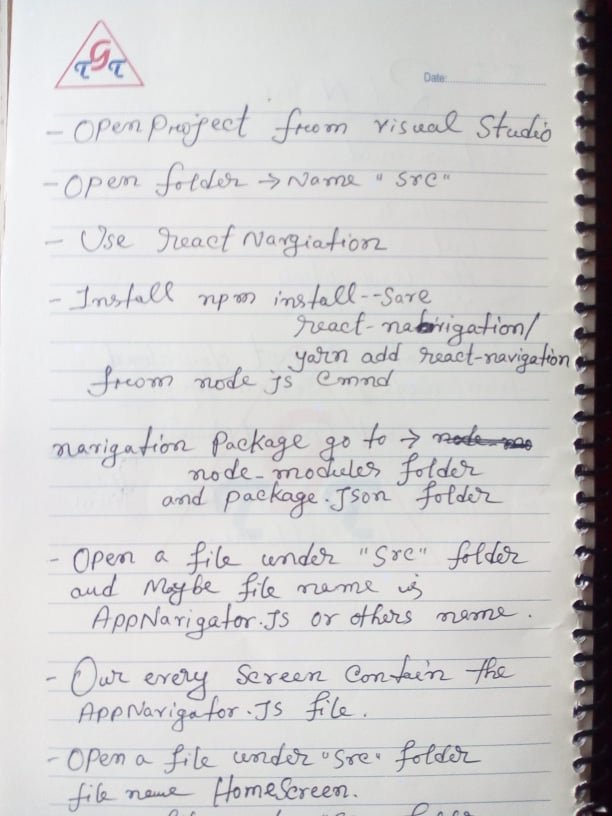 GTT
Date:
- Open Project from visual Studio
- Open folder → Name "Src"
- Use React Nargiation
- Install npm install--Save
react-navigation/
yarn add react-navigation
from node js Cmnd
navigation Package go to →
node-modules folder
and package.Json folder
- Open a file under "Src" folder
and Maybe file name is
AppNavigator.JS or others name.
- Our every Screen Contain the
AppNavigator.JS file.
- Open a file under "Src" folder
file name HomeScreen.